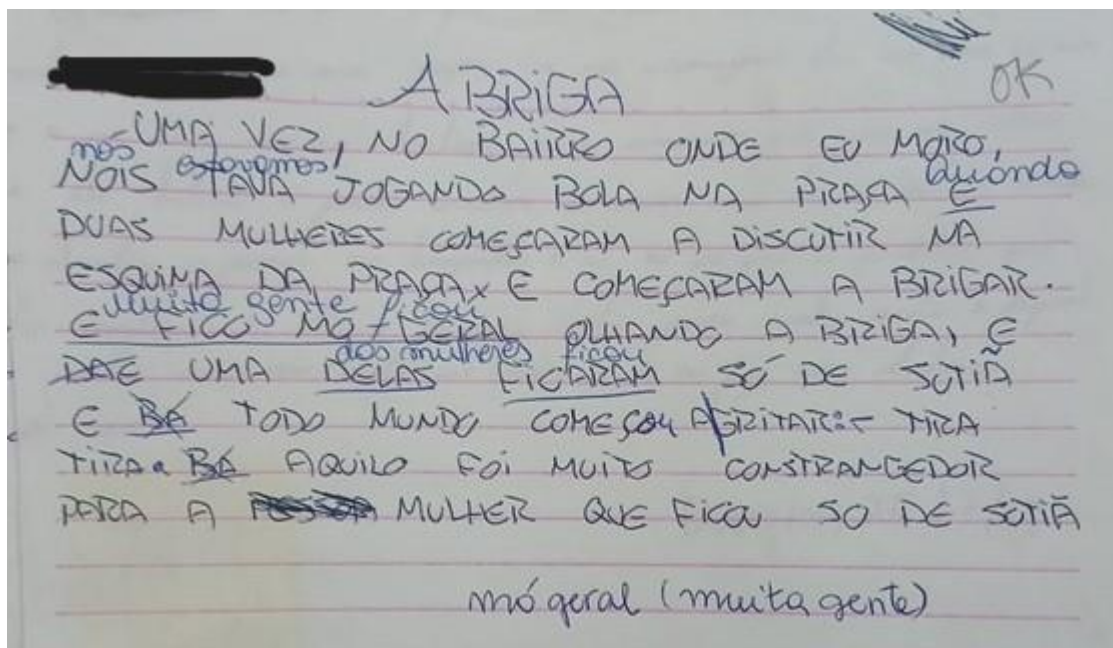 A BRIGA
OK
UMA VEZ, NO BAIRRO ONDE EU MORO,
nós estavamos quando
NOIS TAVA JOGANDO BOLA NA PRAÇA E
DUAS MULHERES COMEÇARAM A DISCUTIR NA
ESQUINA DA PRAÇA x E COMEÇARAM A BRIGAR.
muita gente ficou
E FICO MO GERAL OLHANDO A BRIGA, E
das mulheres ficou
DAE UMA DELAS FICARAM SÓ DE SUTIÃ
E BÁ TODO MUNDO COMEÇOU A GRITAR:- TIRA
TIRA. BÁ AQUILO FOI MUITO CONSTRANGEDOR
PARA A MULHER QUE FICOU SO DE SUTIÃ
mó geral (muita gente)